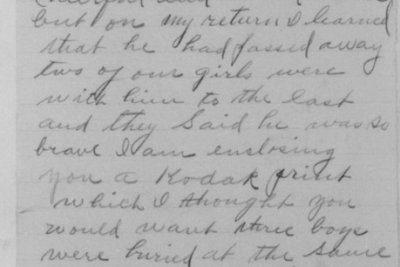 but on my return I learned
that he had passed away
two of our girls were
with him to the last
and they said he was so
brave I am enclosing
you a Kodak print
which I thought you
would want three boys
were buried at the same